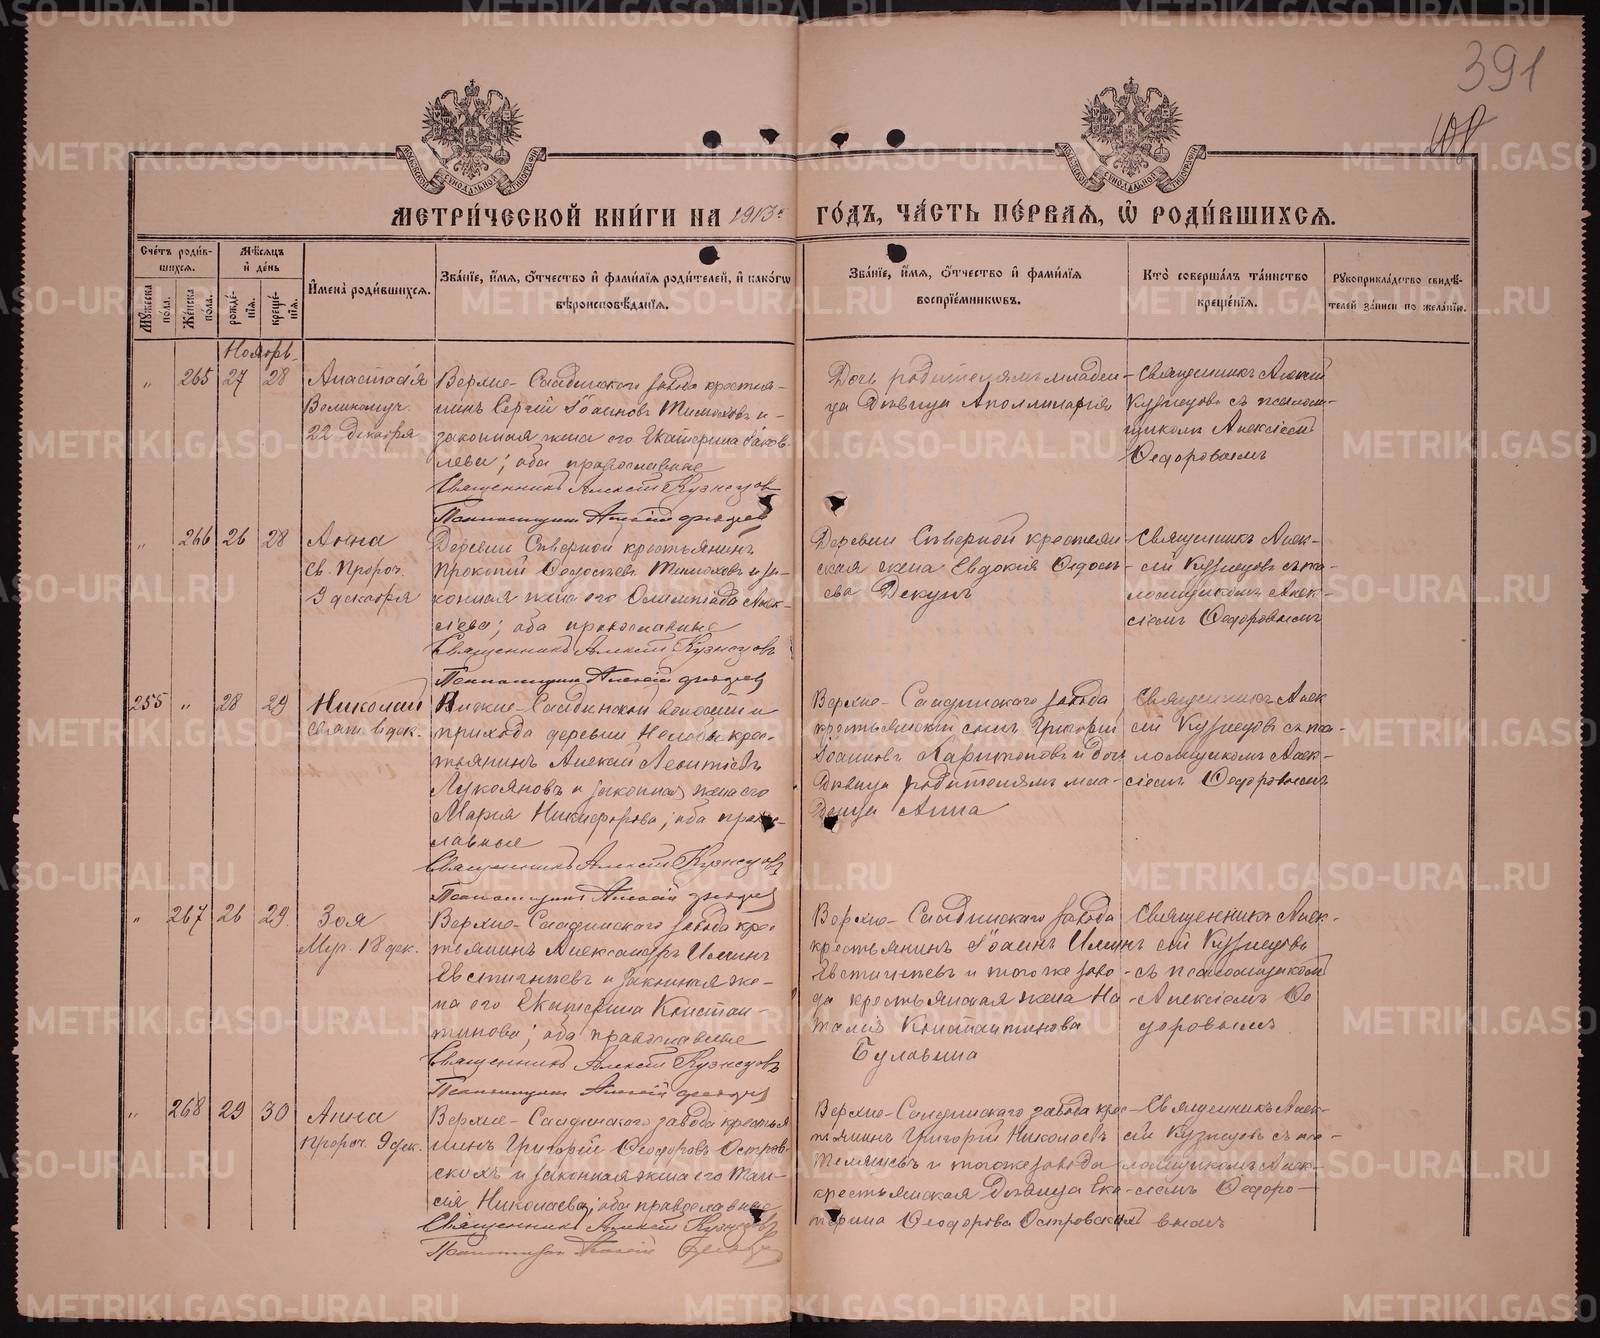 391
108
МЕТРИ́ЧЕСКОЙ КНИ́ГИ НА 1913 ГО́ДЪ, ЧА́СТЬ ПЕ́РВАЯ, Ѡ РОДИ́ВШИХСЯ.
Сче́тъ роди́вшихся.
Му́жеска пола.
Же́нска пола.
Мѣсяцъ и день
рожде́нія.
креще́нія.
Имена̀ роди́вшихся.
Зва́ніе, и́мя, о́тчество и фами́лія роди́телей, и како́гѡ
вѣроисповѣ́данія.
Зва́ніе, и́мя, о́тчество и фами́лія
воспріе́мниковъ.
Кто̀ соверша́лъ та́инство
креще́нія.
Рукоприкла́дство свидѣ́-
телей за́писи по жела́нію.
Ноябрь
" 265 27 28
Анастасія
Великомуч.
22 декабря
Верхне-Салдинскаго завода крестья-
нинъ Сергій Іоанновъ и
законная жена его Екатерина Іаков-
лева; оба православные
Священникъ Алексій Кузнецовъ
Псаломщикъ Алексій Федоров
Дочь родителямъ младен-
ца Дѣвица Аполлинарія
Священникъ Алексій
Кузнецовъ съ псалом-
щикомъ Алексіемъ
Ѳедоровымъ
" 266 26 28
Анна
Св. Пророч.
9 декабря
Деревни Сѣверной крестьянинъ
Прокопій Ѳедосѣевъ и за-
конная жена его Олимпіада Алек-
сіева; оба православные
Священникъ Алексій Кузнецовъ
Псаломщикъ Алексій Федоров
Деревни Сѣверной крестьян-
ская жена Евдокія Ѳедось-
ева
Священникъ Алек-
сій Кузнецовъ съ пса-
ломщикомъ Алек-
сіемъ Ѳедоровымъ
255 " 28 29
Николай
Святит. 6 дек.
Нижне-Салдинской волости и
прихода деревни Нелобы крес-
тьянинъ Алексій Леонтіевъ
Лукояновъ и законная жена его
Марія Никифорова; оба право-
славные
Священникъ Алексій Кузнецовъ
Псаломщикъ Алексій Федоров
Верхне-Салдинскаго завода
крестьянскій сынъ Григорій
Іоанновъ Харитоновъ и дочь
Дѣвица родителямъ мла-
денца Анна
Священникъ Алек
сій Кузнецовъ съ пса-
ломщикомъ Алек-
сіемъ Ѳедоровымъ
" 267 26 29
Зоя
Муч. 18 дек.
Верхне-Салдинскаго завода крес-
тьянинъ Александръ Илiинъ
Евстигнѣевъ и законная же-
на его Екатерина Констан-
тинова; оба православные
Священникъ Алексій Кузнецовъ
Псаломщикъ Алексій Федоров
Верхне-Салдинскаго завода
крестьянинъ Іоаннъ Илiинъ
Евстигнѣевъ и того же заво-
да крестьянская жена На
талія Константинова
Булавина
Священникъ Алек-
сій Кузнецовъ
съ псаломщикомъ
Алексіемъ Ѳе
доровымъ
" 268 29 30
Анна
Пророч. 9 дек.
Верхне-Салдинскаго завода крестья
нинъ Григорій Ѳеодоровъ Островс-
скохъ и законная жена его Таи-
сія Николаева; оба православные
Священникъ Алексій Кузнецовъ
Псаломщикъ Алексій Федоров
Верхне-Салдинскаго завода крес-
тьянинъ Григорій Николаевъ
и того же завода
крестьянская Дѣвица Ека-
терина Ѳеодорова Островская
Священникъ Алек-
сій Кузнецовъ съ пса-
ломщикомъ Алек-
сіемъ Ѳедоро-
вымъ
METRIKI.GASO-URAL.RU